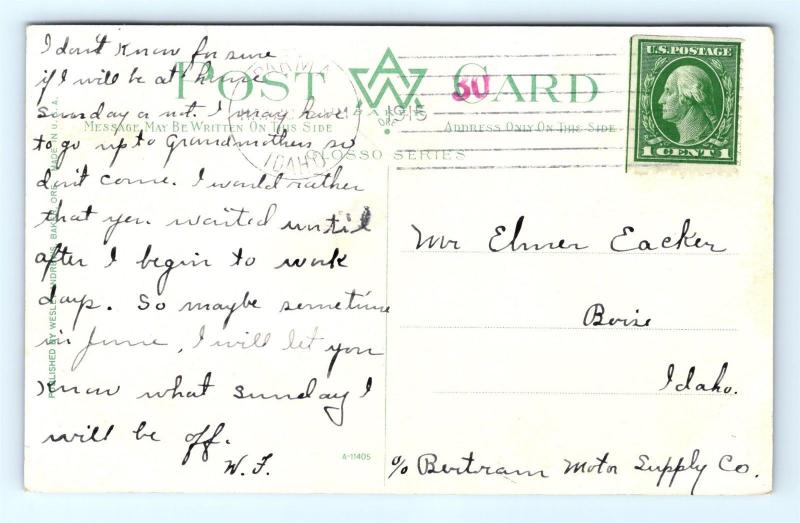 I don't know for sure
if I will be at home
Sunday or not. I may have
to go up to Grandmothers so
don't come. I would rather
that you waited until
after I begin to work
days. So maybe sometime
in June, I will let you
know what Sunday I
will be off.
W. F.
POST CARD
MESSAGE MAY BE WRITTEN ON THIS SIDE
ADDRESS ONLY ON THIS SIDE
GLOSSO SERIES
PARMA
IDAHO
1915
30
U.S. POSTAGE
1 CENT 1
Mr Elmer Eacker
Boise
Idaho.
c/o Bertram Motor Supply Co.
PUBLISHED BY WESLEY ANDREWS, BAKER, ORE. MADE IN U.S.A.
A-11405